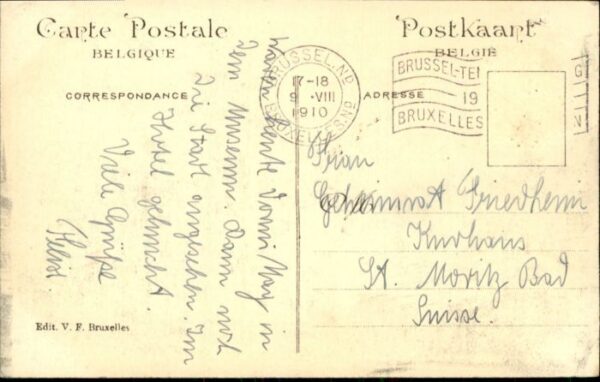 Carte Postale
BELGIQUE
CORRESPONDANCE
Postkaart
BELGIË
ADRESSE
BRUSSEL.ND
17-18
9 .VIII
1910
BRUXELLES.ND
BRUSSEL-TE
19
BRUXELLES
G
N
waren heute Vormittag in
dem Museum. Dann noch
die Stadt angesehen. Im
Hotel gebucht.
Viele Grüße
Frau
Geheimrat Friedheim
Kurhaus
St. Moritz Bad
Suisse.
Edit. V. F. Bruxelles